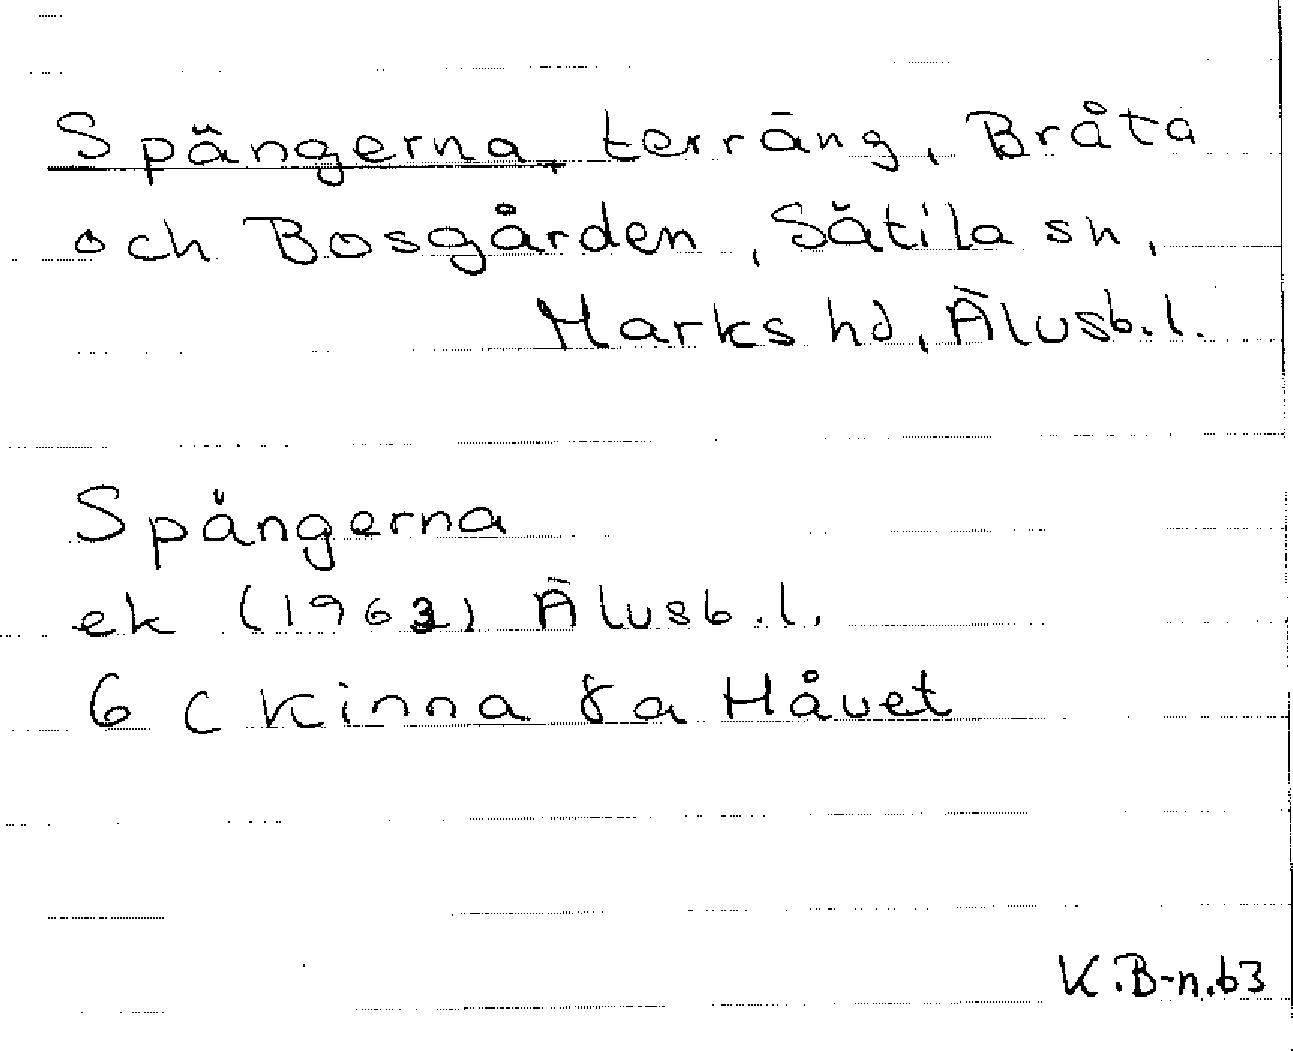 Spängerna, terräng, Bråta
och Bosgården, Sätila sn,
Marks hd, Älvsb.l.
Spängerna
ek (1963) Älvsb.l.
6 C Kinna 8a Håvet
K.B-n.63